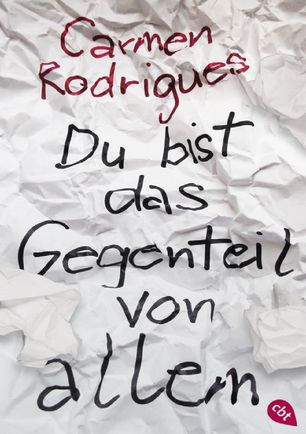 Carmen
Rodrigues
Du bist
das
Gegenteil
von
allem
cbt